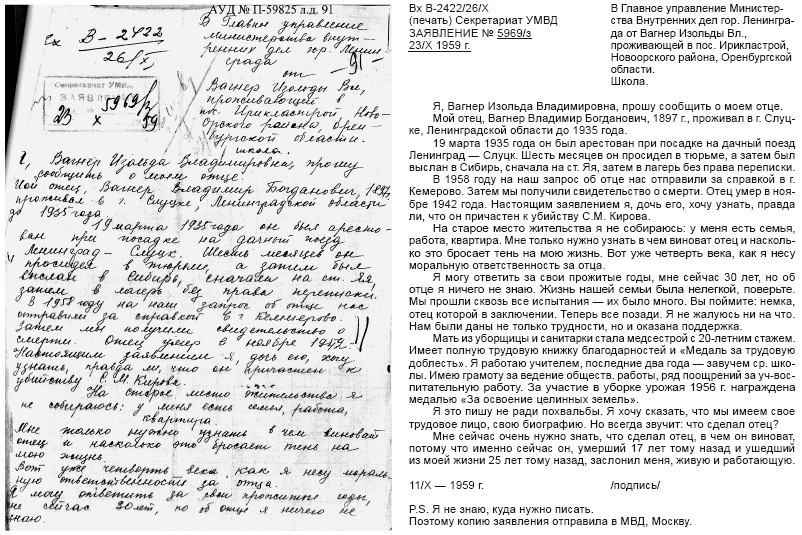 АУД № П-59825 л.д. 91
Вх В-2422
26/X
Секретариат УМВД
ЗАЯВЛЕНИЕ
№ 5969/з
23 X 59
В Главное управление
министерства внут-
ренних дел гор. Ленин-
града
91
от
Вагнер Изольды Вл.,
проживающей в
пос. Ирикластрой Ново-
орского района, Орен-
бургской области.
школа.
Я, Вагнер Изольда Владимировна, прошу
сообщить о моем отце.
Мой отец, Вагнер Владимир Богданович, 1897,
проживал в г. Слуцке, Ленинградской области
до 1935 года.
19 марта 1935 года он был аресто-
ван при посадке на дачный поезд
Ленинград — Слуцк. Шесть месяцев он
просидел в тюрьме, а затем был
выслан в Сибирь, сначала на ст. Яя,
затем в лагерь без права переписки.
В 1958 году на наш запрос об отце нас
отправили за справкой в г. Кемерово.
Затем мы получили свидетельство о
смерти. Отец умер в ноябре 1942.
Настоящим заявлением я, дочь его, хочу
узнать, правда ли, что он причастен к
убийству С. М. Кирова.
На старое место жительства я
не собираюсь: у меня есть семья, работа,
квартира.
Мне только нужно узнать в чем виноват
отец и насколько это бросает тень на
мою жизнь.
Вот уже четверть века как я несу мораль-
ную ответственность за отца.
Я могу ответить за свои прожитые годы,
мне сейчас 30 лет, но об отце я ничего не
знаю.
Вх В-2422/26/X
(печать) Секретариат УМВД
ЗАЯВЛЕНИЕ № 5969/з
23/X 1959 г.
В Главное управление Министер-
ства Внутренних дел гор. Ленингра-
да от Вагнер Изольды Вл.,
проживающей в пос. Ирикластрой,
Новоорского района, Оренбургской
области.
Школа.
Я, Вагнер Изольда Владимировна, прошу сообщить о моем отце.
Мой отец, Вагнер Владимир Богданович, 1897 г., проживал в г. Слуц-
ке, Ленинградской области до 1935 года.
19 марта 1935 года он был арестован при посадке на дачный поезд
Ленинград — Слуцк. Шесть месяцев он просидел в тюрьме, а затем был
выслан в Сибирь, сначала на ст. Яя, затем в лагерь без права переписки.
В 1958 году на наш запрос об отце нас отправили за справкой в г.
Кемерово. Затем мы получили свидетельство о смерти. Отец умер в ноя-
бре 1942 года. Настоящим заявлением я, дочь его, хочу узнать, правда
ли, что он причастен к убийству С.М. Кирова.
На старое место жительства я не собираюсь: у меня есть семья,
работа, квартира. Мне только нужно узнать в чем виноват отец и насколь-
ко это бросает тень на мою жизнь. Вот уже четверть века, как я несу
моральную ответственность за отца.
Я могу ответить за свои прожитые годы, мне сейчас 30 лет, но об
отце я ничего не знаю. Жизнь нашей семьи была нелегкой, поверьте.
Мы прошли сквозь все испытания — их было много. Вы поймите: немка,
отец которой в заключении. Теперь все позади. Я не жалуюсь ни на что.
Нам были даны не только трудности, но и оказана поддержка.
Мать из уборщицы и санитарки стала медсестрой с 20-летним стажем.
Имеет полную трудовую книжку благодарностей и «Медаль за трудовую
доблесть». Я работаю учителем, последние два года — завучем ср. шко-
лы. Имею грамоту за ведение обществ. работы, ряд поощрений за уч-вос-
питательную работу. За участие в уборке урожая 1956 г. награждена
медалью «За освоение целинных земель».
Я это пишу не ради похвальбы. Я хочу сказать, что мы имеем свое
трудовое лицо, свою биографию. Но всегда звучит: что сделал отец?
Мне сейчас очень нужно знать, что сделал отец, в чем он виноват,
потому что именно сейчас он, умерший 17 лет тому назад и ушедший
из моей жизни 25 лет тому назад, заслонил меня, живую и работающую.
11/X — 1959 г. /подпись/
P.S. Я не знаю, куда нужно писать.
Поэтому копию заявления отправила в МВД, Москву.